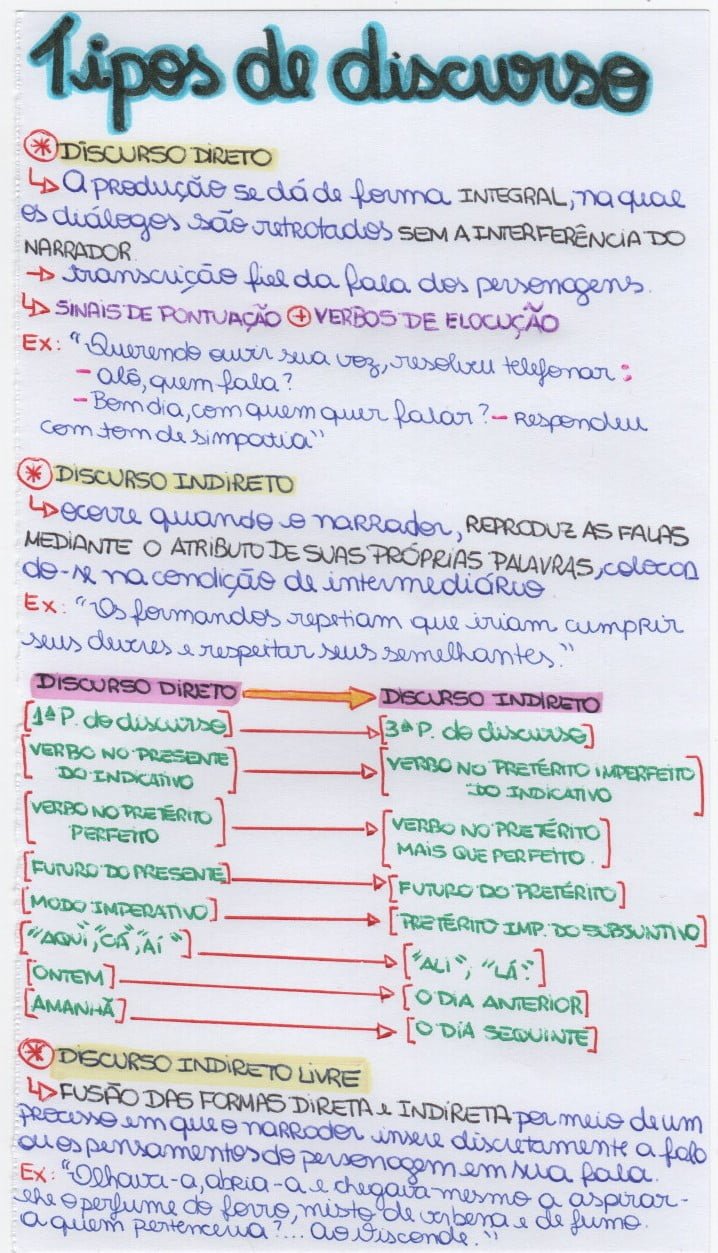 Tipos de discurso
* DISCURSO DIRETO
↳ A produção se dá de forma INTEGRAL, na qual
os diálogos são retrotados SEM A INTERFERÊNCIA DO
NARRADOR.
→ transcrição fiel da fala dos personagens.
↳ SINAIS DE PONTUAÇÃO + VERBOS DE ELOCUÇÃO
Ex: "Querendo ouvir sua voz, resolveu telefonar:
- Alô, quem fala?
- Bom dia, com quem quer falar? - Respondeu
com tom de simpatia"
* DISCURSO INDIRETO
↳ ocorre quando o narrador, REPRODUZ AS FALAS
MEDIANTE O ATRIBUTO DE SUAS PRÓPRIAS PALAVRAS, colocan
do-se na condição de intermediário.
Ex: "Os formandos repetiam que iriam cumprir
seus deveres e respeitar seus semelhantes."
DISCURSO DIRETO → DISCURSO INDIRETO
[1ª P. do discurso] → [3ª P. do discurso]
[VERBO NO PRESENTE → [VERBO NO PRETÉRITO IMPERFEITO
DO INDICATIVO] DO INDICATIVO]
[VERBO NO PRETÉRITO → [VERBO NO PRETÉRITO
PERFEITO] MAIS QUE PERFEITO.]
[FUTURO DO PRESENTE] → [FUTURO DO PRETÉRITO]
[MODO IMPERATIVO] → [PRETÉRITO IMP. DO SUBJUNTIVO]
["AQUI", "CÁ", "AÍ"] → ["ALI", "LÁ"]
[ONTEM] → [O DIA ANTERIOR]
[AMANHÃ] → [O DIA SEQUINTE]
* DISCURSO INDIRETO LIVRE
↳ FUSÃO DAS FORMAS DIRETA e INDIRETA por meio de um
processo em que o narrador insere discretamente a fala
ou os pensamentos do personagem em sua fala.
Ex: "Olhava-a, abria-a e chegava mesmo a aspirar-
lhe o perfume do forro, misto de verbena e de fumo.
A quem pertenceria?... ao Visconde."